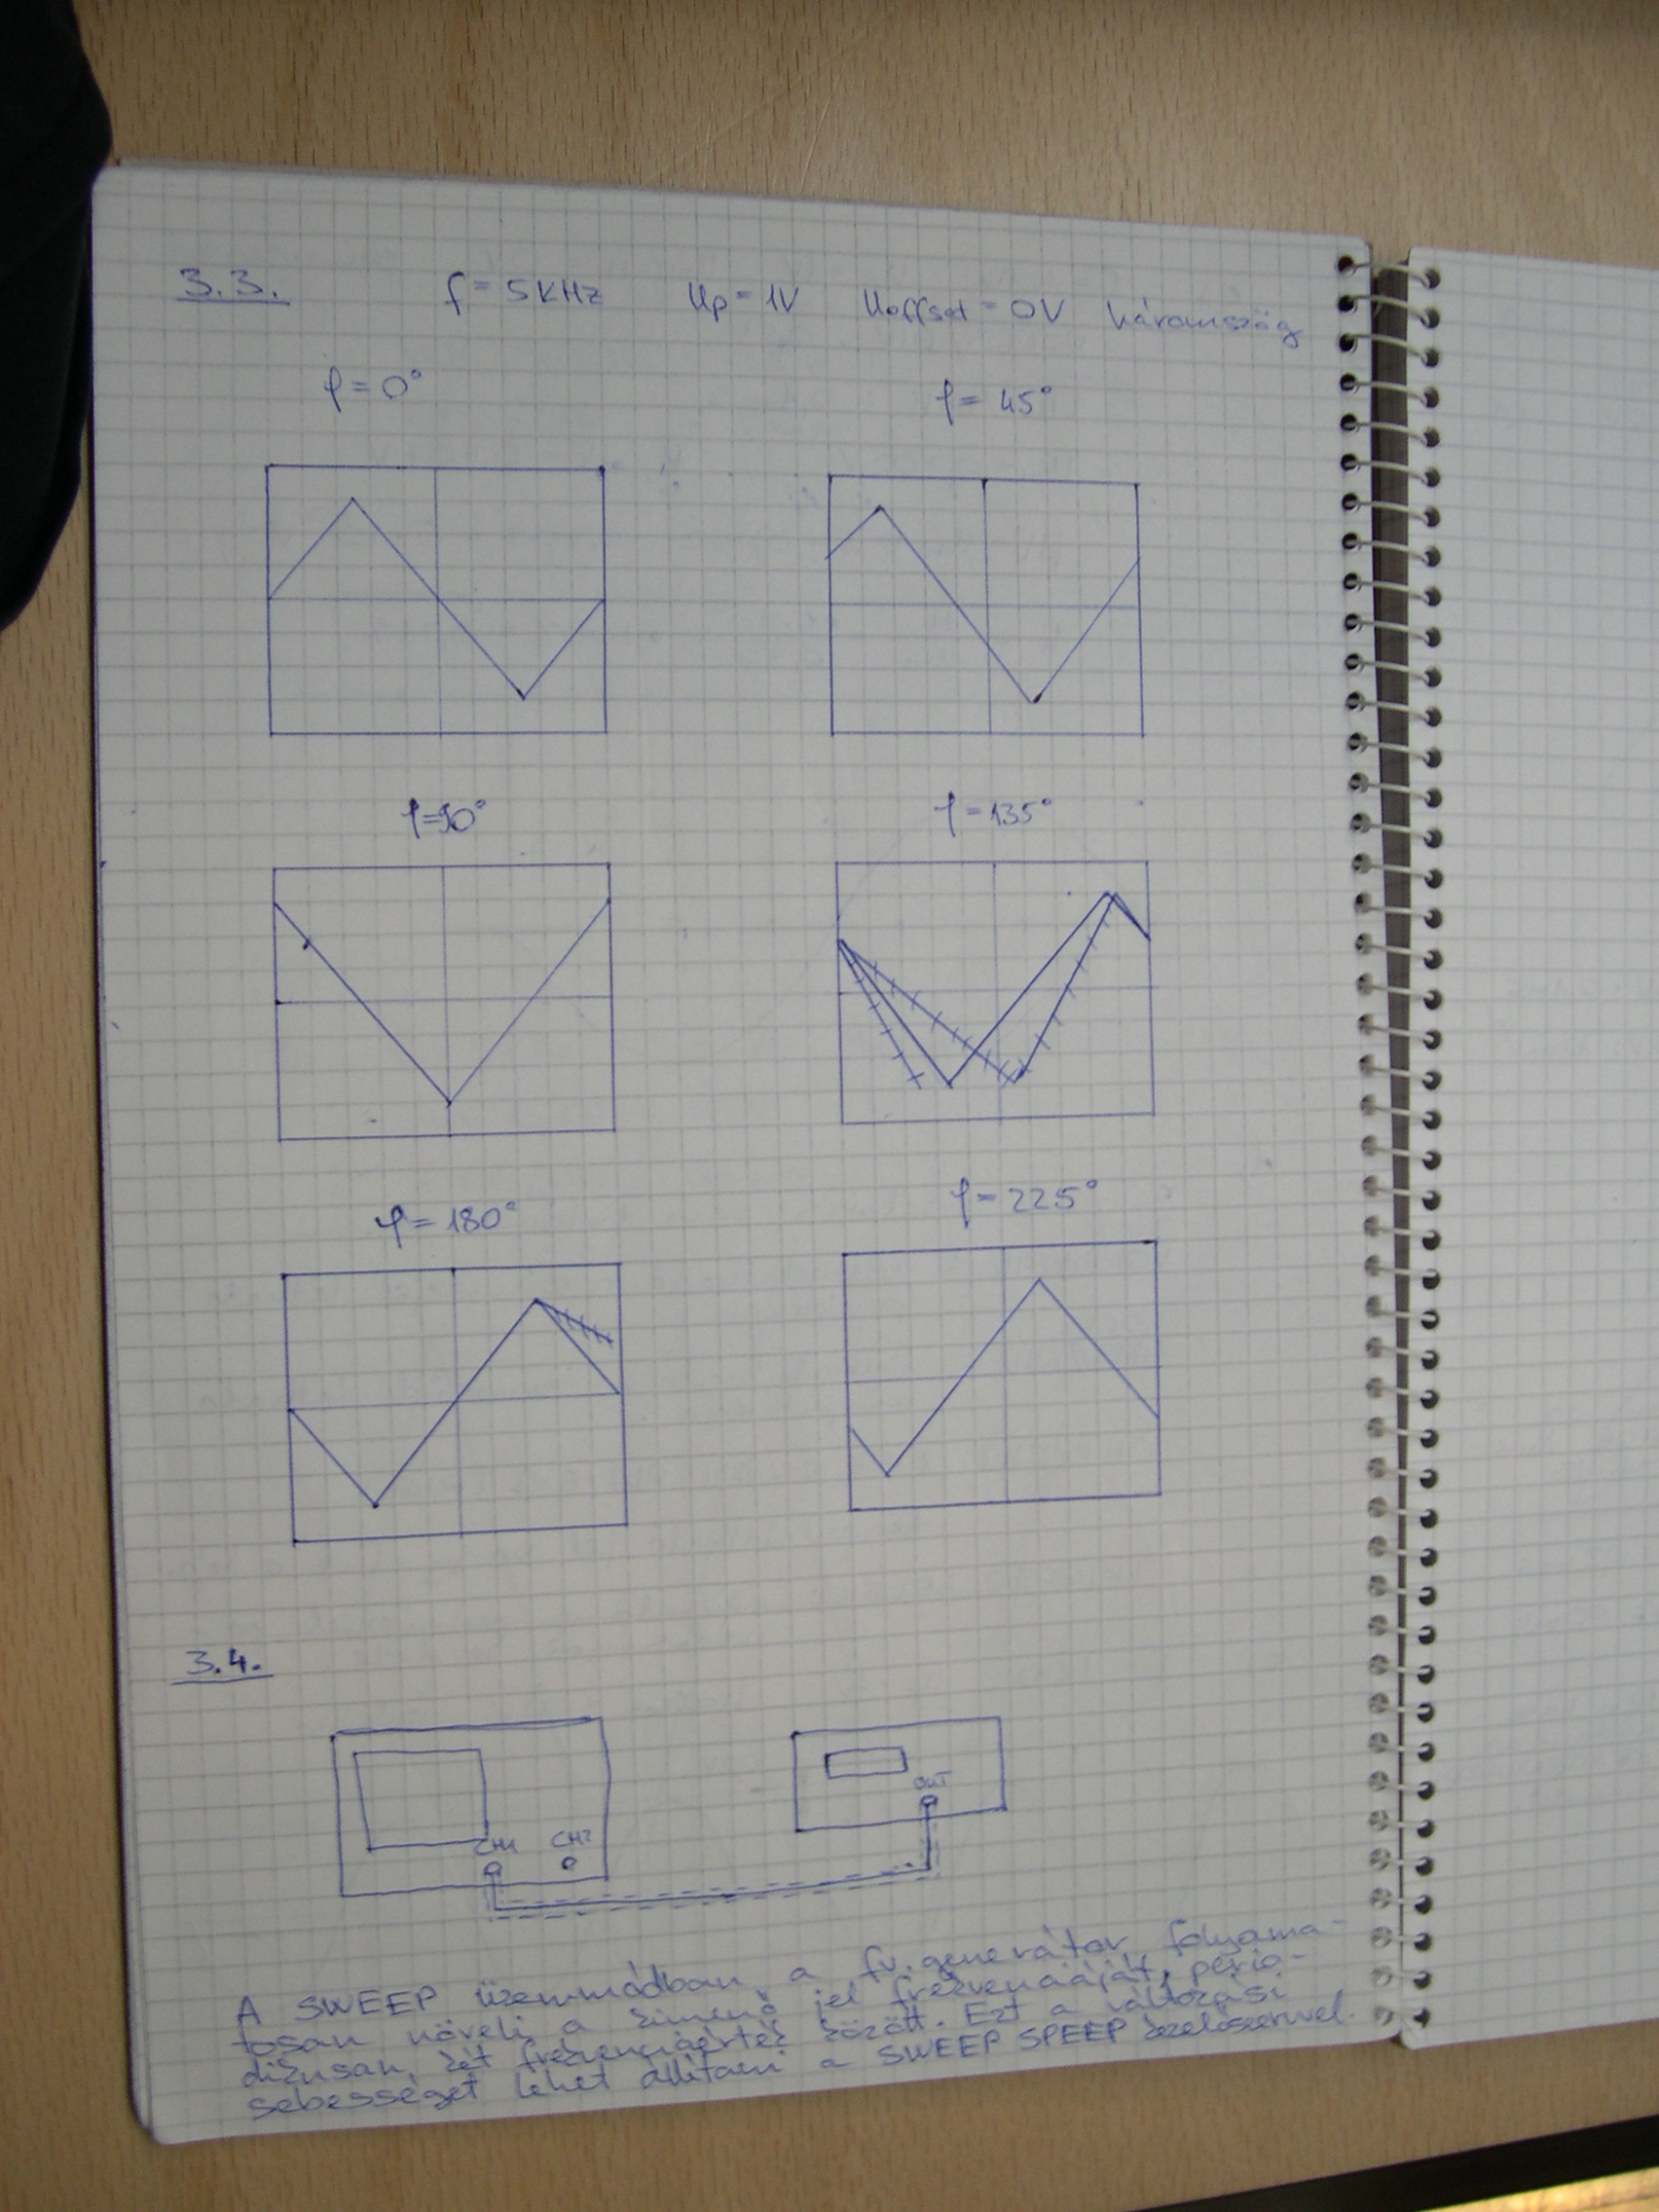 3.3. f = 5 KHz Up = 1V Uoffset = 0V háromszög
φ = 0° φ = 45°
φ = 90° φ = 135°
φ = 180° φ = 225°
3.4.
OUT
CH1 CH2
A SWEEP üzemmódban a fv. generátor folyama-
tosan növeli a kimenő jel frekvenciáját, perio-
dikusan, két frekvenciaérték között. Ezt a változási
sebességet lehet állítani a SWEEP SPEEP kezelőszervvel.